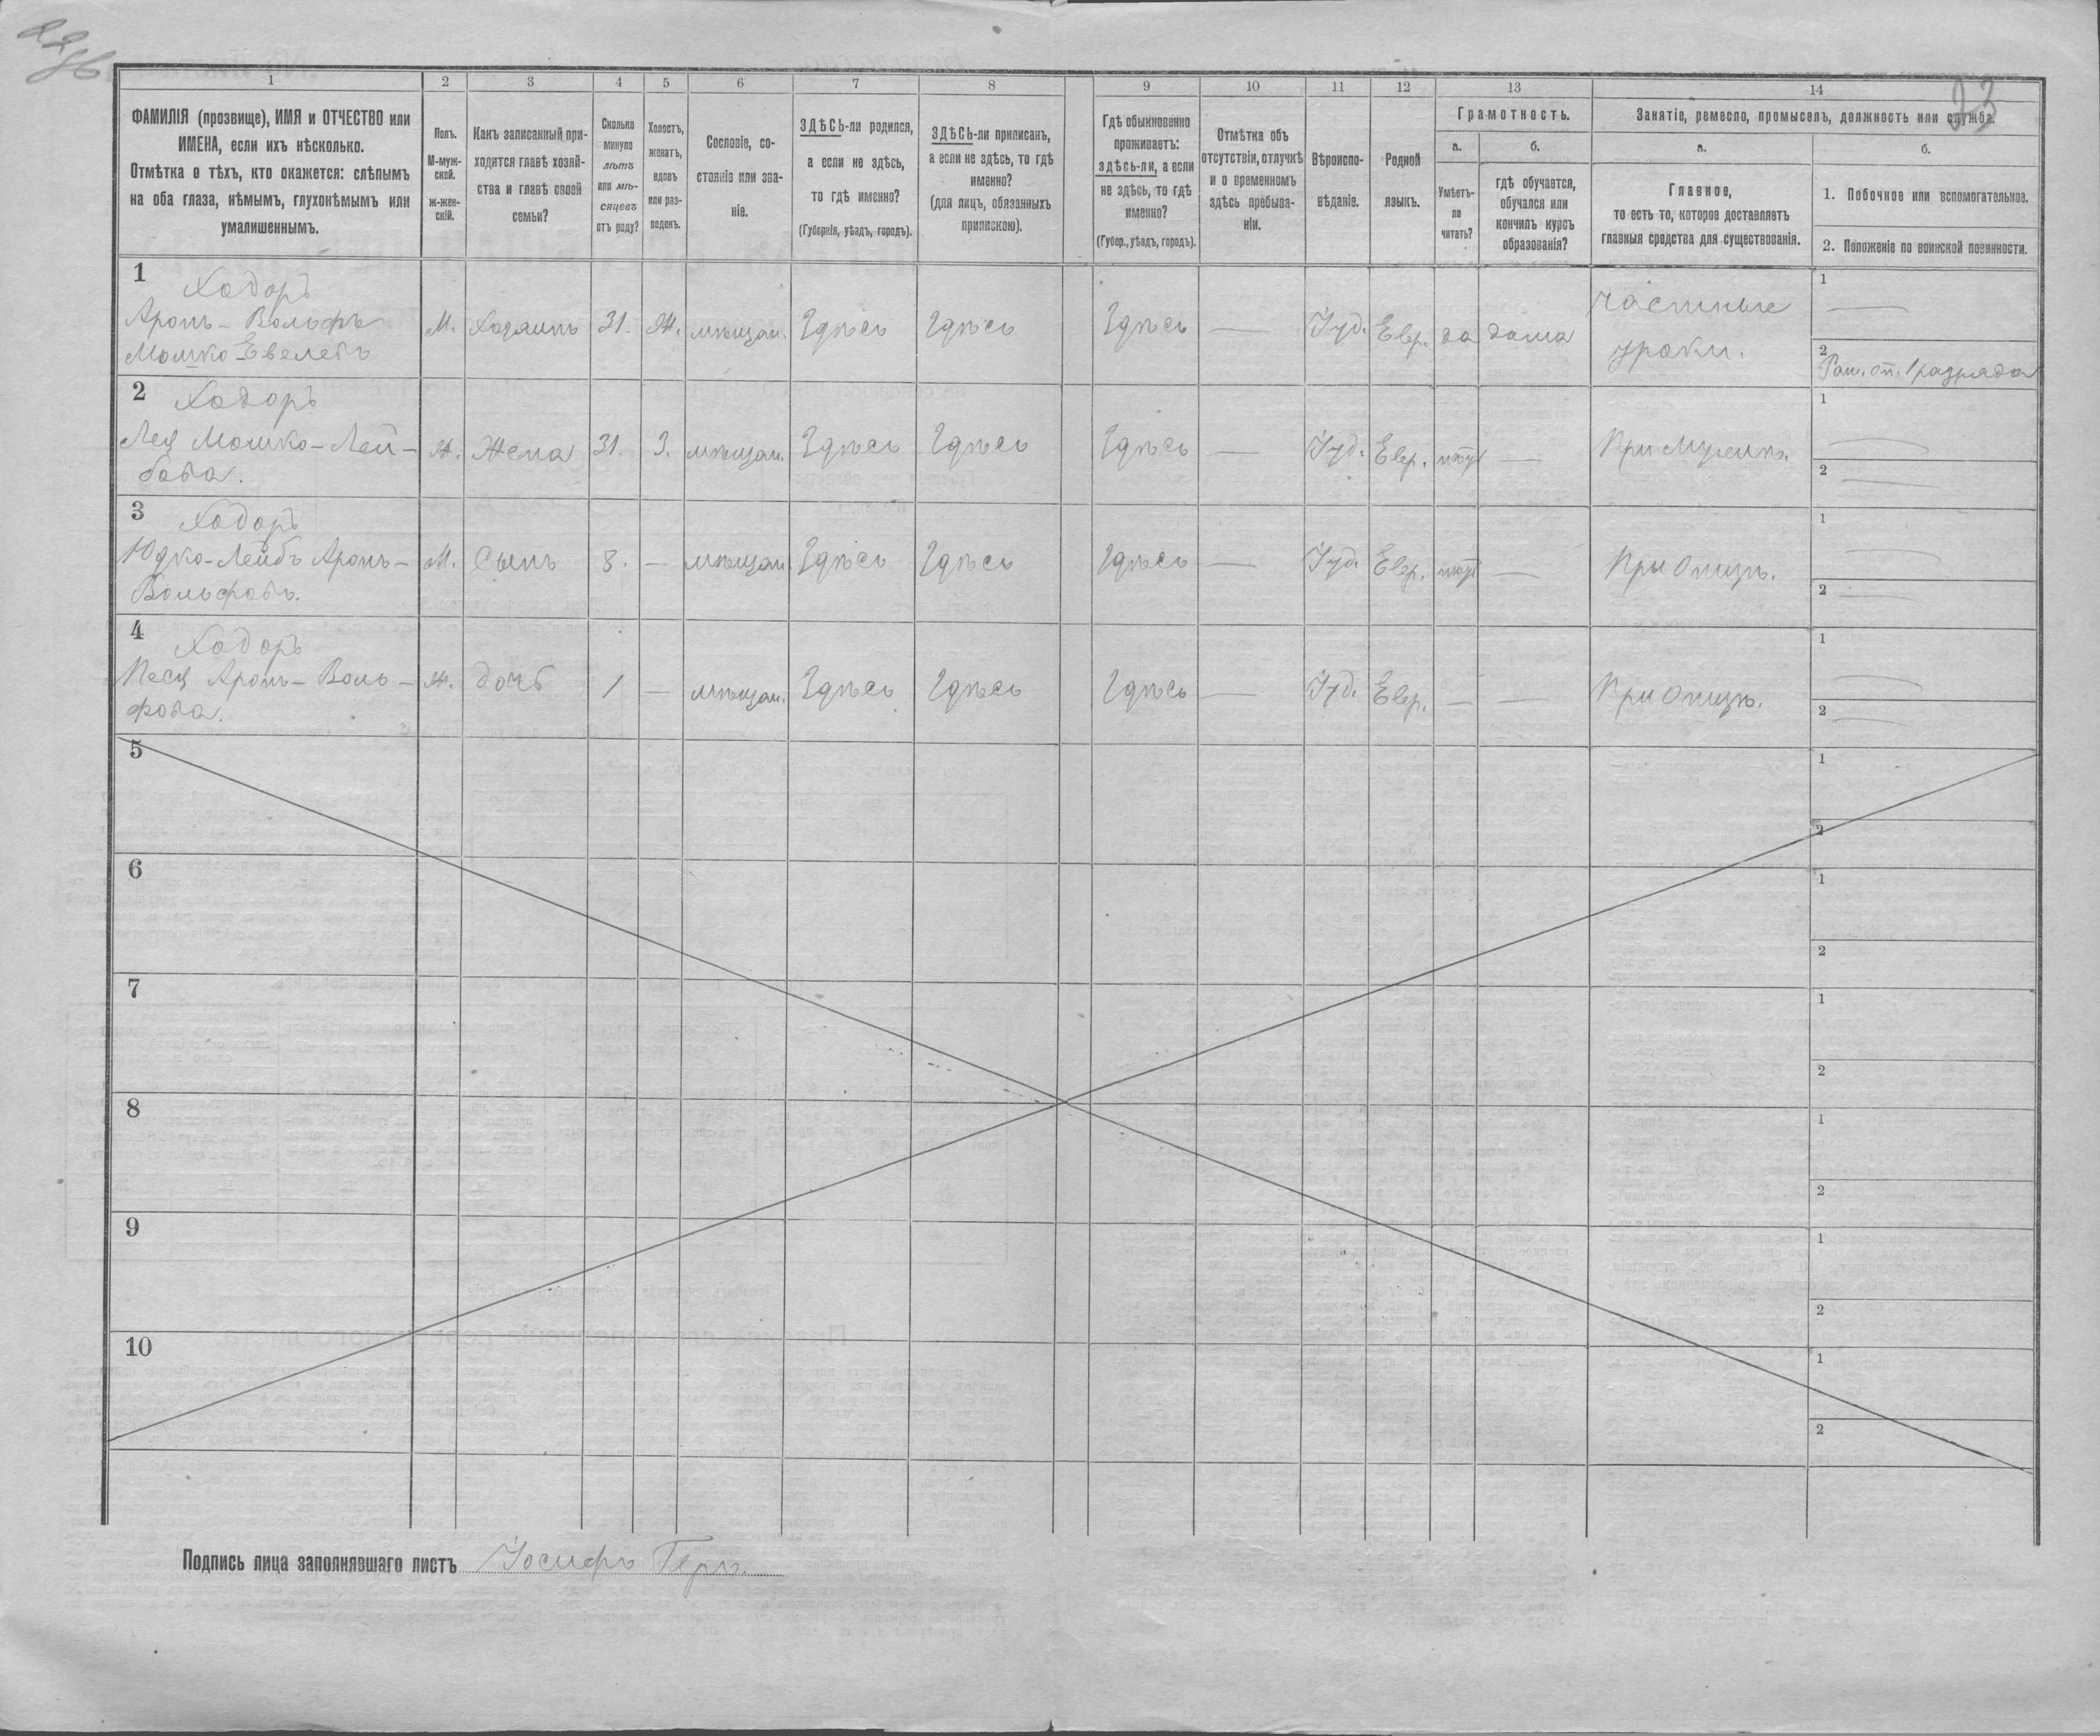 23
1 2 3 4 5 6 7 8 9 10 11 12 13 14
ФАМИЛІЯ (прозвище), ИМЯ и ОТЧЕСТВО или
ИМЕНА, если ихъ нѣсколько.
Отмѣтка о тѣхъ, кто окажется: слѣпымъ
на оба глаза, нѣмымъ, глухонѣмымъ или
умалишеннымъ.
Полъ.
М-муж-
ской.
Ж-жен-
скій.
Какъ записанный при-
ходится главѣ хозяй-
ства и главѣ своей
семьи?
Сколько
минуло
лѣтъ
или мѣ-
сяцевъ
отъ роду?
Холостъ,
женатъ,
вдовъ
или раз-
веденъ.
Сословіе, со-
стояніе или зва-
ніе.
ЗДѢСЬ-ли родился,
а если не здѣсь,
то гдѣ именно?
(Губернія, уѣздъ, городъ).
ЗДѢСЬ-ли приписанъ,
а если не здѣсь, то гдѣ
именно?
(для лицъ, обязанныхъ
припискою).
Гдѣ обыкновенно
проживаетъ:
здѣсь-ли, а если
не здѣсь, то гдѣ
именно?
(Губер., уѣздъ, городъ).
Отмѣтка объ
отсутствіи, отлучкѣ
и о временномъ
здѣсь пребыва-
ніи.
Вѣроиспо-
вѣданіе.
Родной
языкъ.
Грамотность.
а.
Умѣетъ-
ли
читать?
б.
гдѣ обучается,
обучался или
кончилъ курсъ
образованія?
Занятіе, ремесло, промыселъ, должность или служба.
а.
Главное,
то есть то, которое доставляетъ
главныя средства для существованія.
б.
1. Побочное или вспомогательное.
2. Положеніе по воинской повинности.
1 Ходоръ
Аронъ-Вольфъ
Мошко-Евелевъ
М. Хозяинъ 31. Ж. мѣщан. Здѣсь Здѣсь Здѣсь — Іуд. Евр. да дома Частные
уроки.
1 —
2 Рат. оп. 1 разряда
2 Ходоръ
Лея Мошко-Лей-
бова.
Ж. Жена 31. З. мѣщан. Здѣсь Здѣсь Здѣсь — Іуд. Евр. нѣтъ — При Мужѣ.
1 —
2 —
3 Ходоръ
Юдко-Лейбъ Аронъ-
Вольфовъ.
М. Сынъ 8. — мѣщан Здѣсь Здѣсь Здѣсь — Іуд. Евр. нѣтъ — При Отцѣ.
1 —
2 —
4 Ходоръ
Песя Аронъ-Воль-
фова.
Ж. дочь 1 — мѣщан. Здѣсь Здѣсь Здѣсь — Іуд. Евр. — — При Отцѣ.
1 —
2 —
5
1
2
6
1
2
7
1
2
8
1
2
9
1
2
10
1
2
Подпись лица заполнявшаго листъ Іосифъ